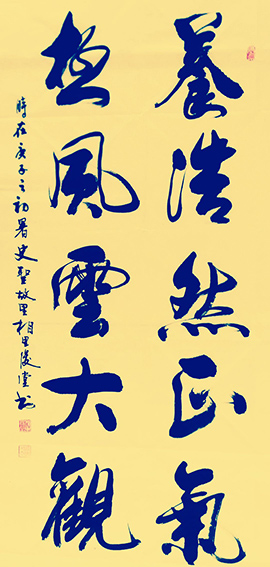 養浩然正氣
極風雲大觀
時在庚子之初暑史聖故里相里堂书